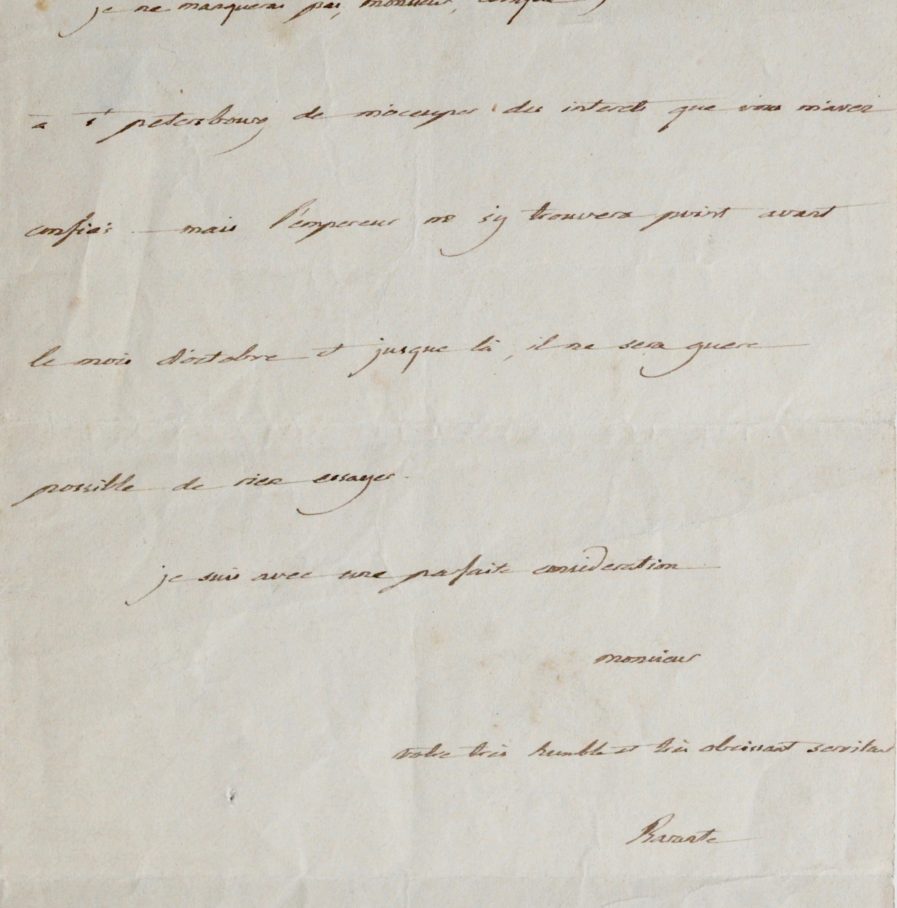 je ne manquerai pas, monsieur,
a St petersbourg de m'occuper des interets que vous m'avez
confiés - mais l'empereur ne s'y trouvera point avant
le mois d'octobre et jusque là, il ne sera guere
possible de rien essayer.
je suis avec une parfaite consideration
monsieur
votre très humble et très obeissant serviteur
Barante